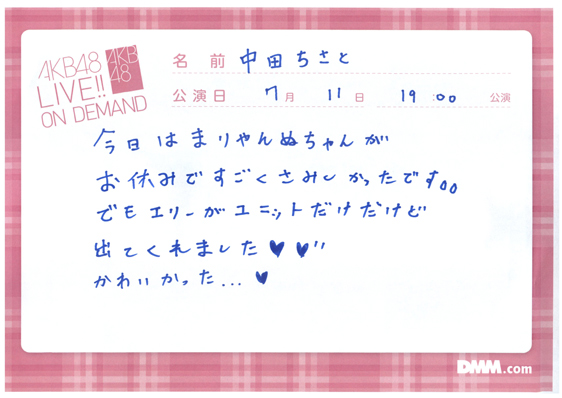 AKB48
LIVE!!
ON DEMAND
AKB
48
名前 中田ちさと
公演日 7月 11日 19:00 公演
今日はまりやんぬちゃんが
お休みですごくさみしかったです。。
でもエリーがユニットだけだけど
出てくれました♥♥〃
かわいかった...♥
DMM.com